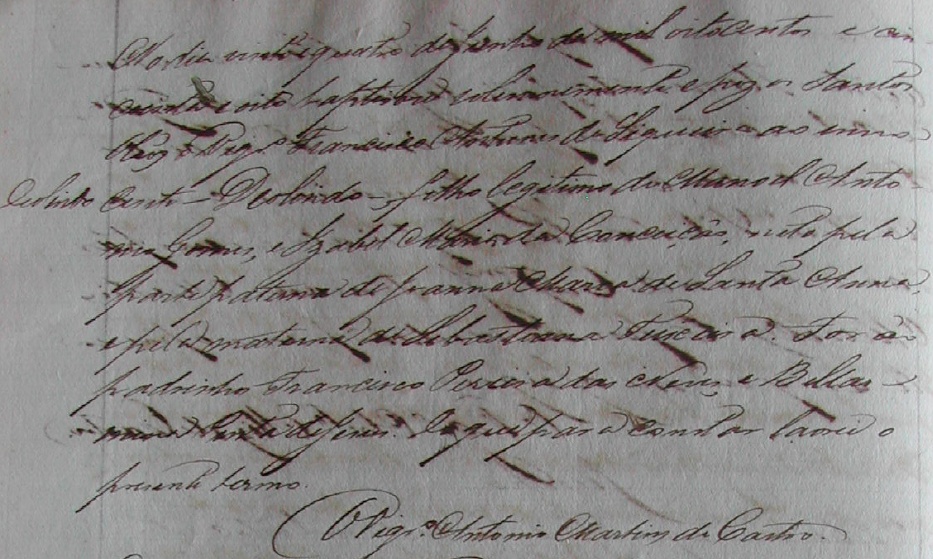 No dia vinte quatro de Junho de mil oitocentos e cin
coenta e oito baptisou solemnemente e poz os Santos
Oleos o Vigr.º Francisco Antunes de Siqueira ao inno
Deolindo cente — Deolindo — filho legitimo de Manoel Anto
nio Gomes, e Izabel Maria da Conceição, neto pela
parte paterna de Joanna Maria de Santa Anna,
e pela materna de Sebastiana Pereira. For ão
padrinho Francisco Pereira das Neves e
de Jesus. Do que para constar lavrei o
presente termo.
O Vigr.º Antonio Martins de Castro.